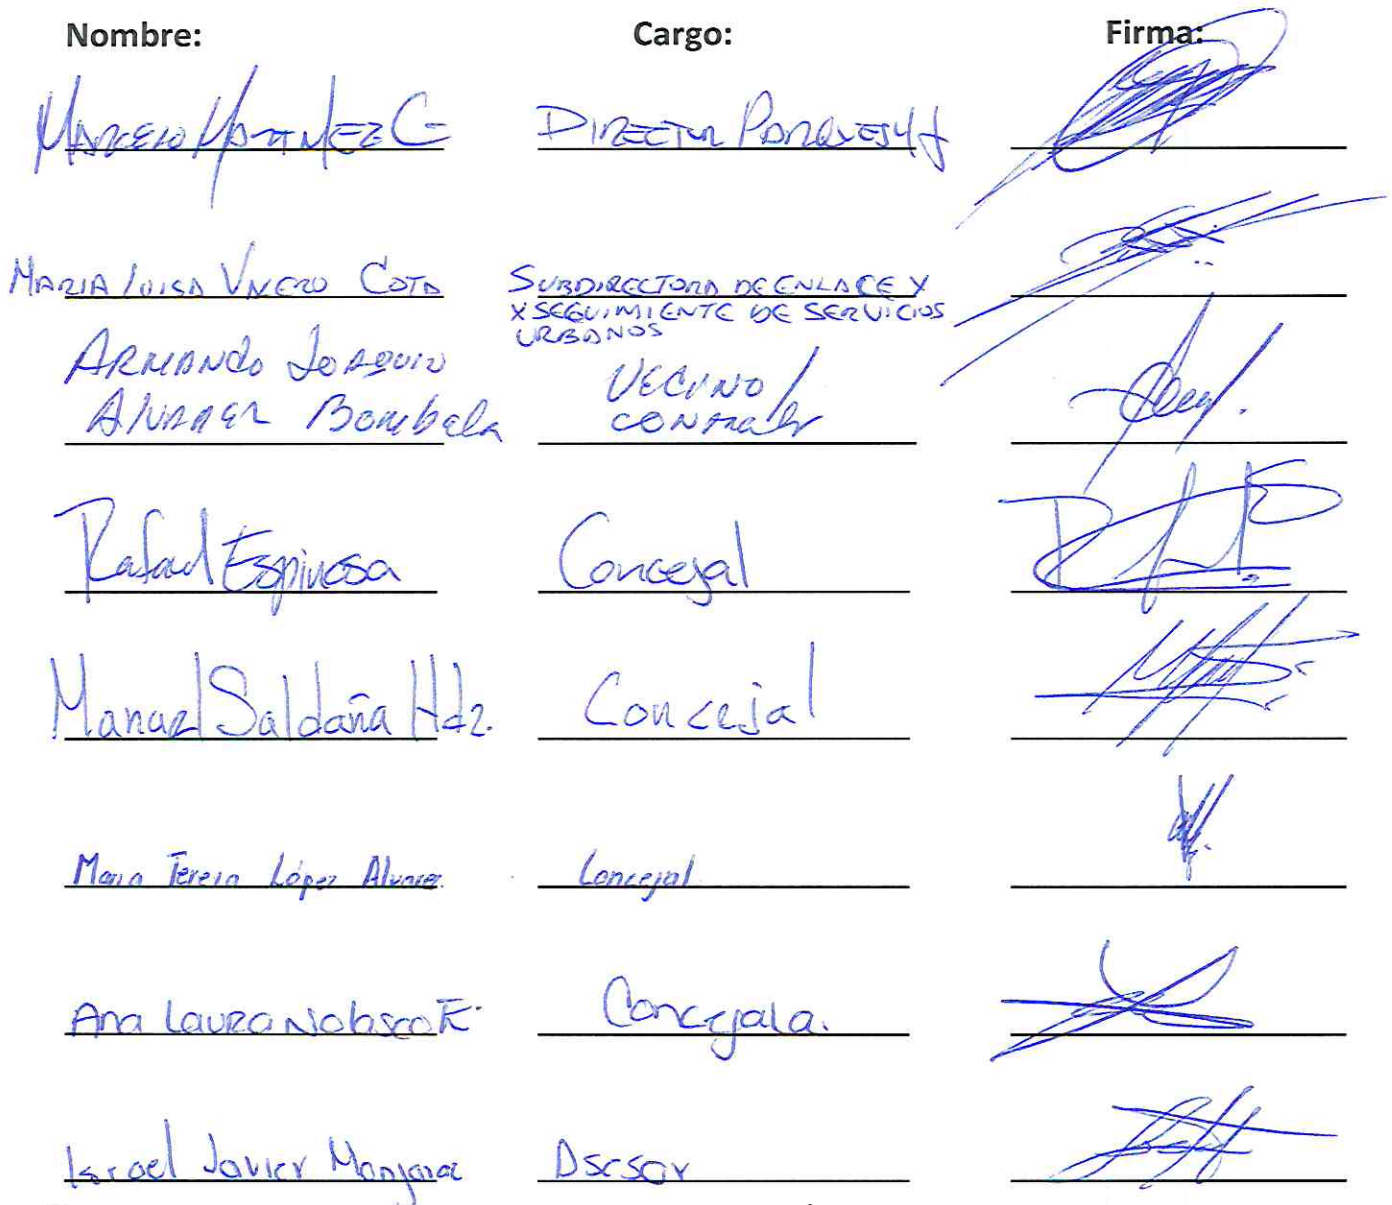 Nombre: Cargo: Firma:
MARCELO MARTINEZ C DIRECTOR PARQUES Y J
MARIA LUISA COTA SUBDIRECTORA DE ENLACE Y
X SEGUIMIENTE DE SERVICIOS
URBANOS
ARMANDO JOAQUIN VECINO
ALVAREZ Bombela CONTRALOR
Rafael Espinosa Concejal
Manuel Saldaña Hdz. Concejal
Maria Teresa López Alvarez Concejal
Ana Laura Nolasco Concejala.
Israel Javier Asesor